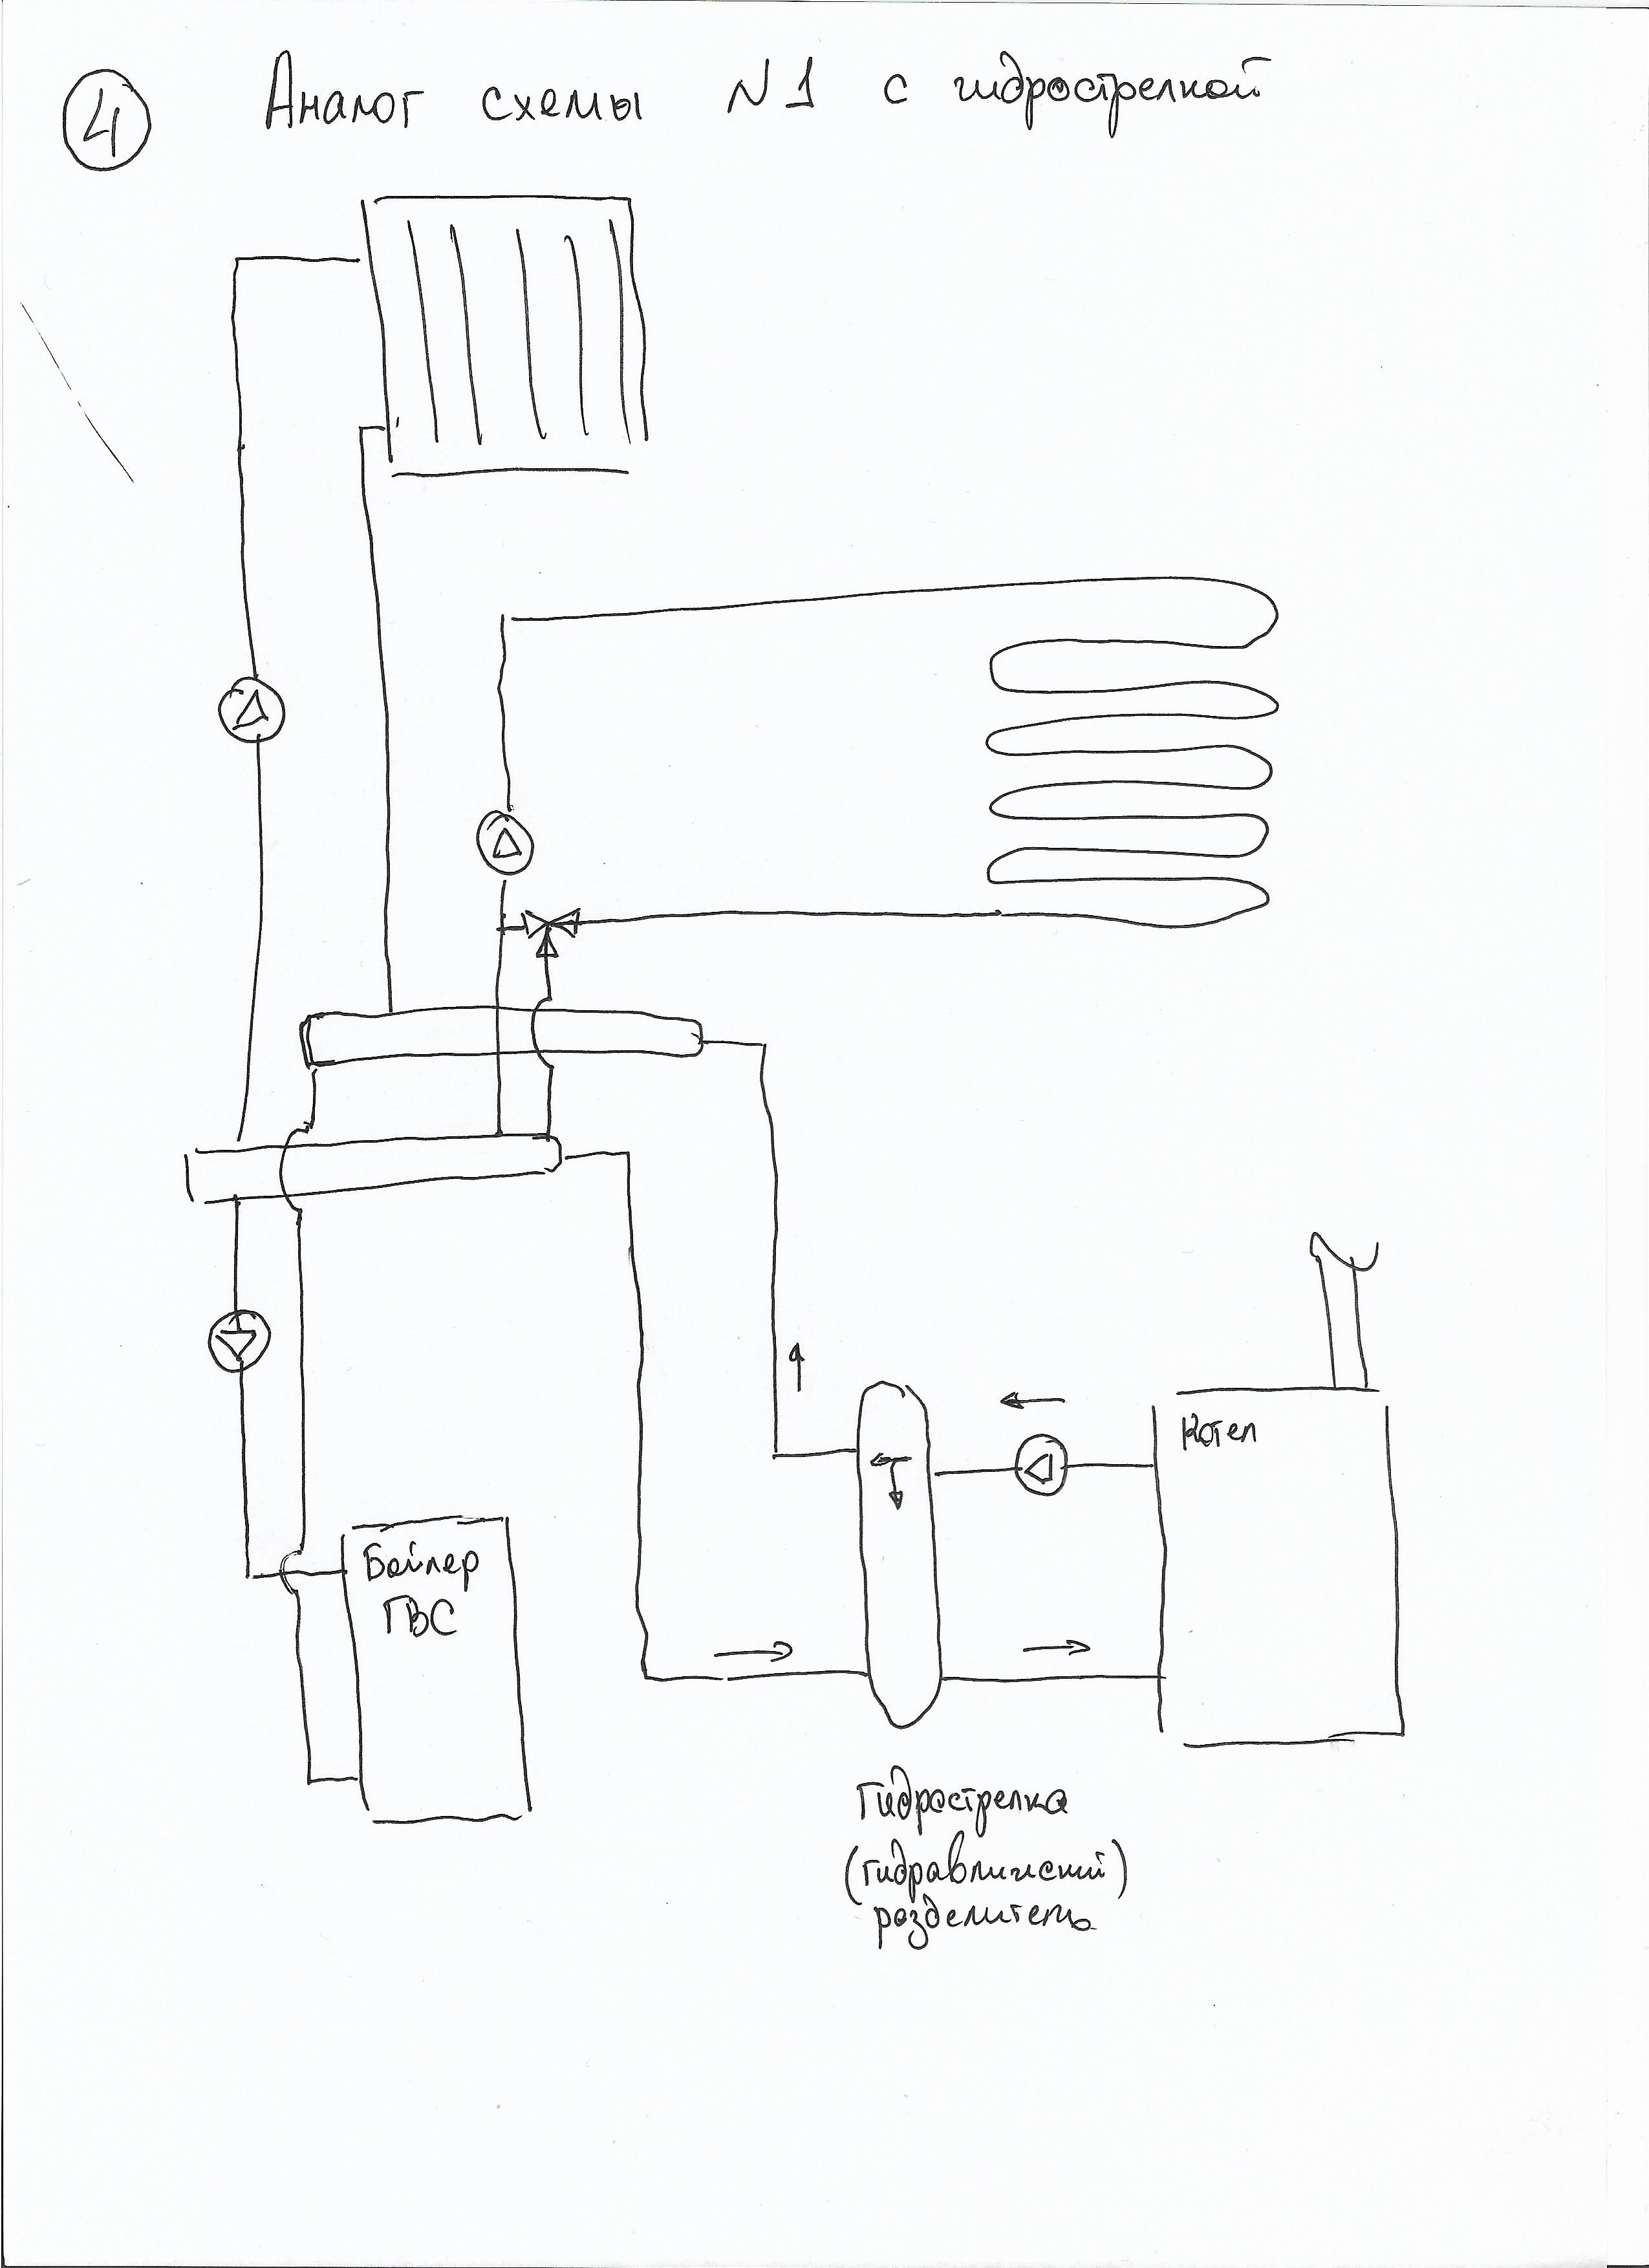 4 Аналог схемы N1 с гидрострелкой
Котел
Бойлер
ГВС
Гидрострелка
(гидравлический)
разделитель